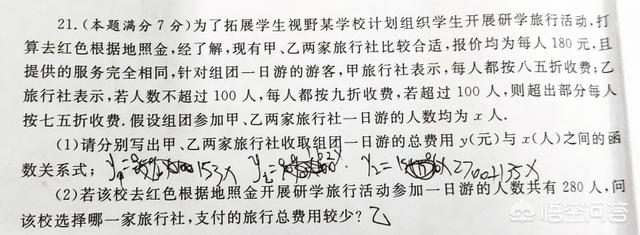 21.(本题满分7分)为了拓展学生视野某学校计划组织学生开展研学旅行活动,打
算去红色根据地照金,经了解,现有甲、乙两家旅行社比较合适,报价均为每人180元,且
提供的服务完全相同,针对组团一日游的游客,甲旅行社表示,每人都按八五折收费;乙
旅行社表示,若人数不超过100人,每人都按九折收费,若超过100人,则超出部分每人
按七五折收费.假设组团参加甲、乙两家旅行社一日游的人数均为x人.
(1)请分别写出甲、乙两家旅行社收取组团一日游的总费用y(元)与x(人)之间的函
数关系式; y甲= 153x y乙= y乙= 2700+135x
(2)若该校去红色根据地照金开展研学旅行活动参加一日游的人数共有280人,问
该校选择哪一家旅行社,支付的旅行总费用较少? 乙
悟空问答